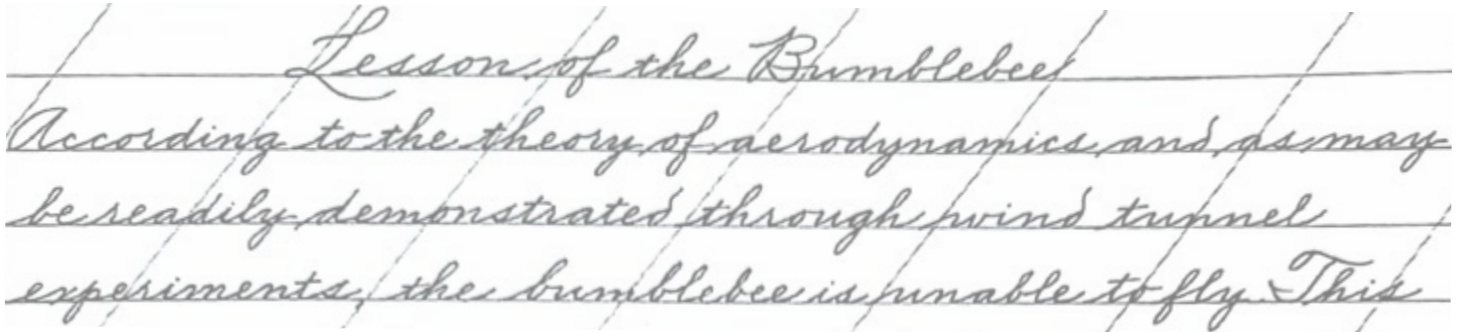 Lesson of the Bumblebee
According to the theory of aerodynamics and as may
be readily demonstrated through wind tunnel
experiments, the bumblebee is unable to fly. This